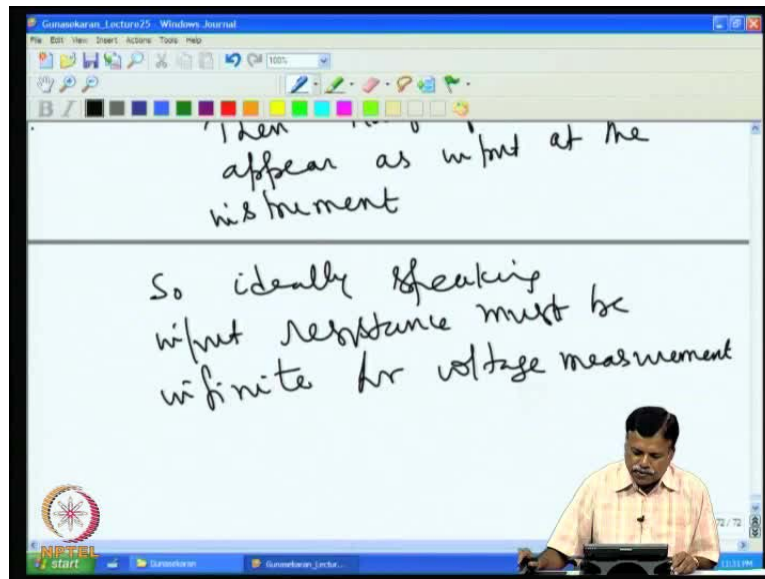 Gunasekaran_Lecture25 - Windows Journal
File Edit View Insert Actions Tools Help
100%
B I
Then
appear as input at the
instrument
So ideally speaking
input resistance must be
infinite for voltage measurement
72 / 72
NPTEL
start Gunasekaran Gunasekaran_Lectur...
12:31 PM